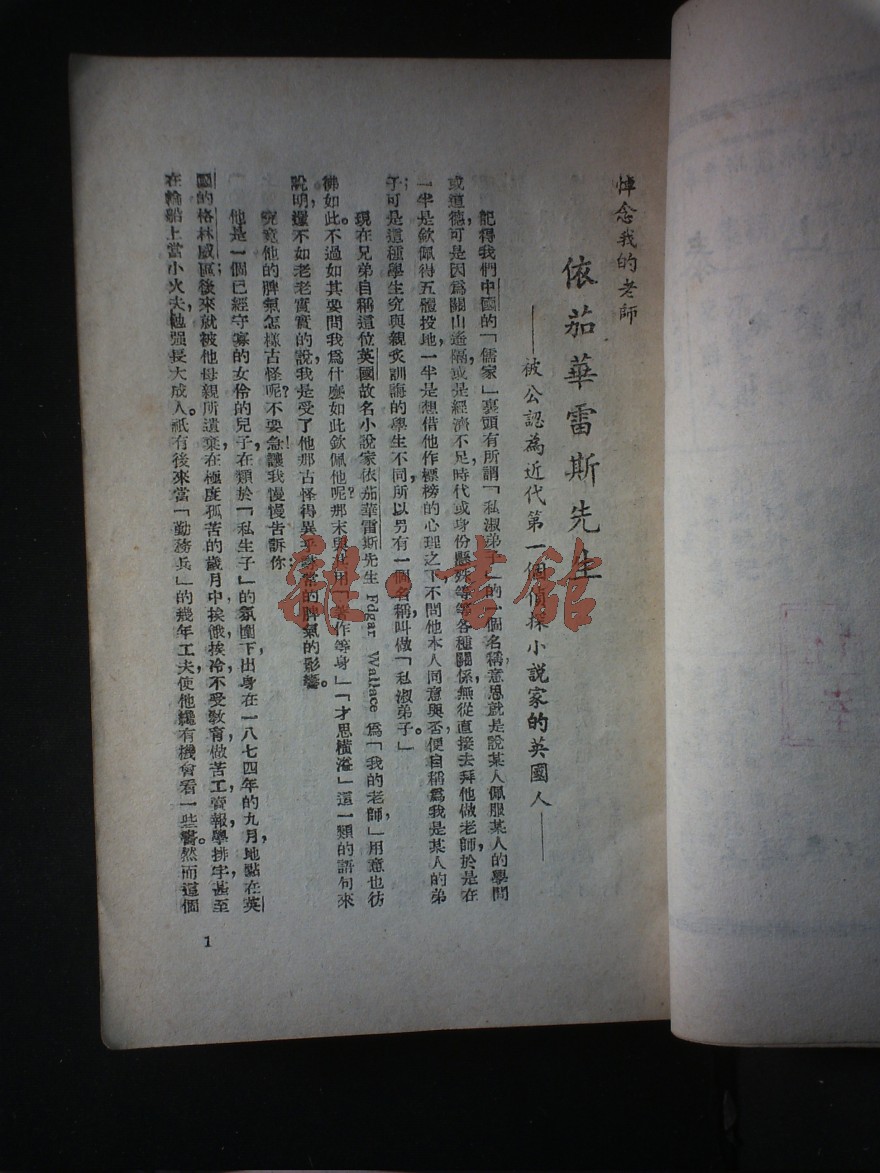 悼念我的老師
依茄華雷斯先生
——被公認為近代第一個偵探小說家的英國人——
記得我們中國的「儒家」裏頭有所謂「私淑弟子」的一個名稱,意思就是說某人佩服某人的學問
或道德,可是因爲關山遙隔,或是經濟不足,時代或身份懸殊等等各種關係,無從直接去拜他做老師,於是在
一半是欽佩得五體投地,一半是想借他作標榜的心理之下,不問他本人同意與否,便自稱爲我是某人的弟
子;可是這種學生究與親炙訓誨的學生不同,所以另有一個名稱,叫做「私淑弟子」。
現在兄弟自稱這位英國故名小說家依茄華雷斯先生 Edgar Wallace 爲「我的老師」,用意也彷
彿如此。不過如其要問我爲什麼如此欽佩他呢?那末與其用「著作等身」「才思橫溢」這一類的語句來
說明,還不如老老實實的說,我是受了他那古怪得異乎尋常的脾氣的影響。
究竟他的脾氣怎樣古怪呢?不要急!讓我慢慢告訴你:
他是一個已經守寡的女伶的兒子,在類於「私生子」的氛圍下出身,在一八七四年的九月,地點在英
國的格林威區;後來就被他母親所遺棄,在極度孤苦的歲月中,挨餓挨冷,不受敎育,做苦工,賣報,學排字,甚至
在輪船上當小火夫,勉强長大成人。祇有後來當「勤務兵」的幾年工夫,使他纔有機會看一些書。然而這個
1
雜·書館